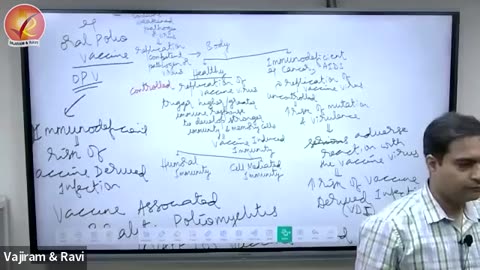 VAJIRAM & RAVI
eg
Oral Polio
Vaccine
OPV
Immunodeficie
risk of
Vaccine Derived
Infection
Vaccine Associated
Poliomyelitis
pathogen
replication
competent
pathogen
Body
Healthy
controlled replication of
vaccine virus
trigger higher/greater
immune response
to develop stronger
immunity & memory cells
Vaccine Induced
Immunity
Humoral
Immunity
Cell Mediated
Immunity
Immunodeficient
eg Cancer, AIDS
replication of
vaccine virus
uncontrolled
↑ risk of mutation
& virulence
adverse
reaction with
the vaccine virus
↑ risk of Vaccine
Derived Infection
(VDI)
Vajiram & Ravi